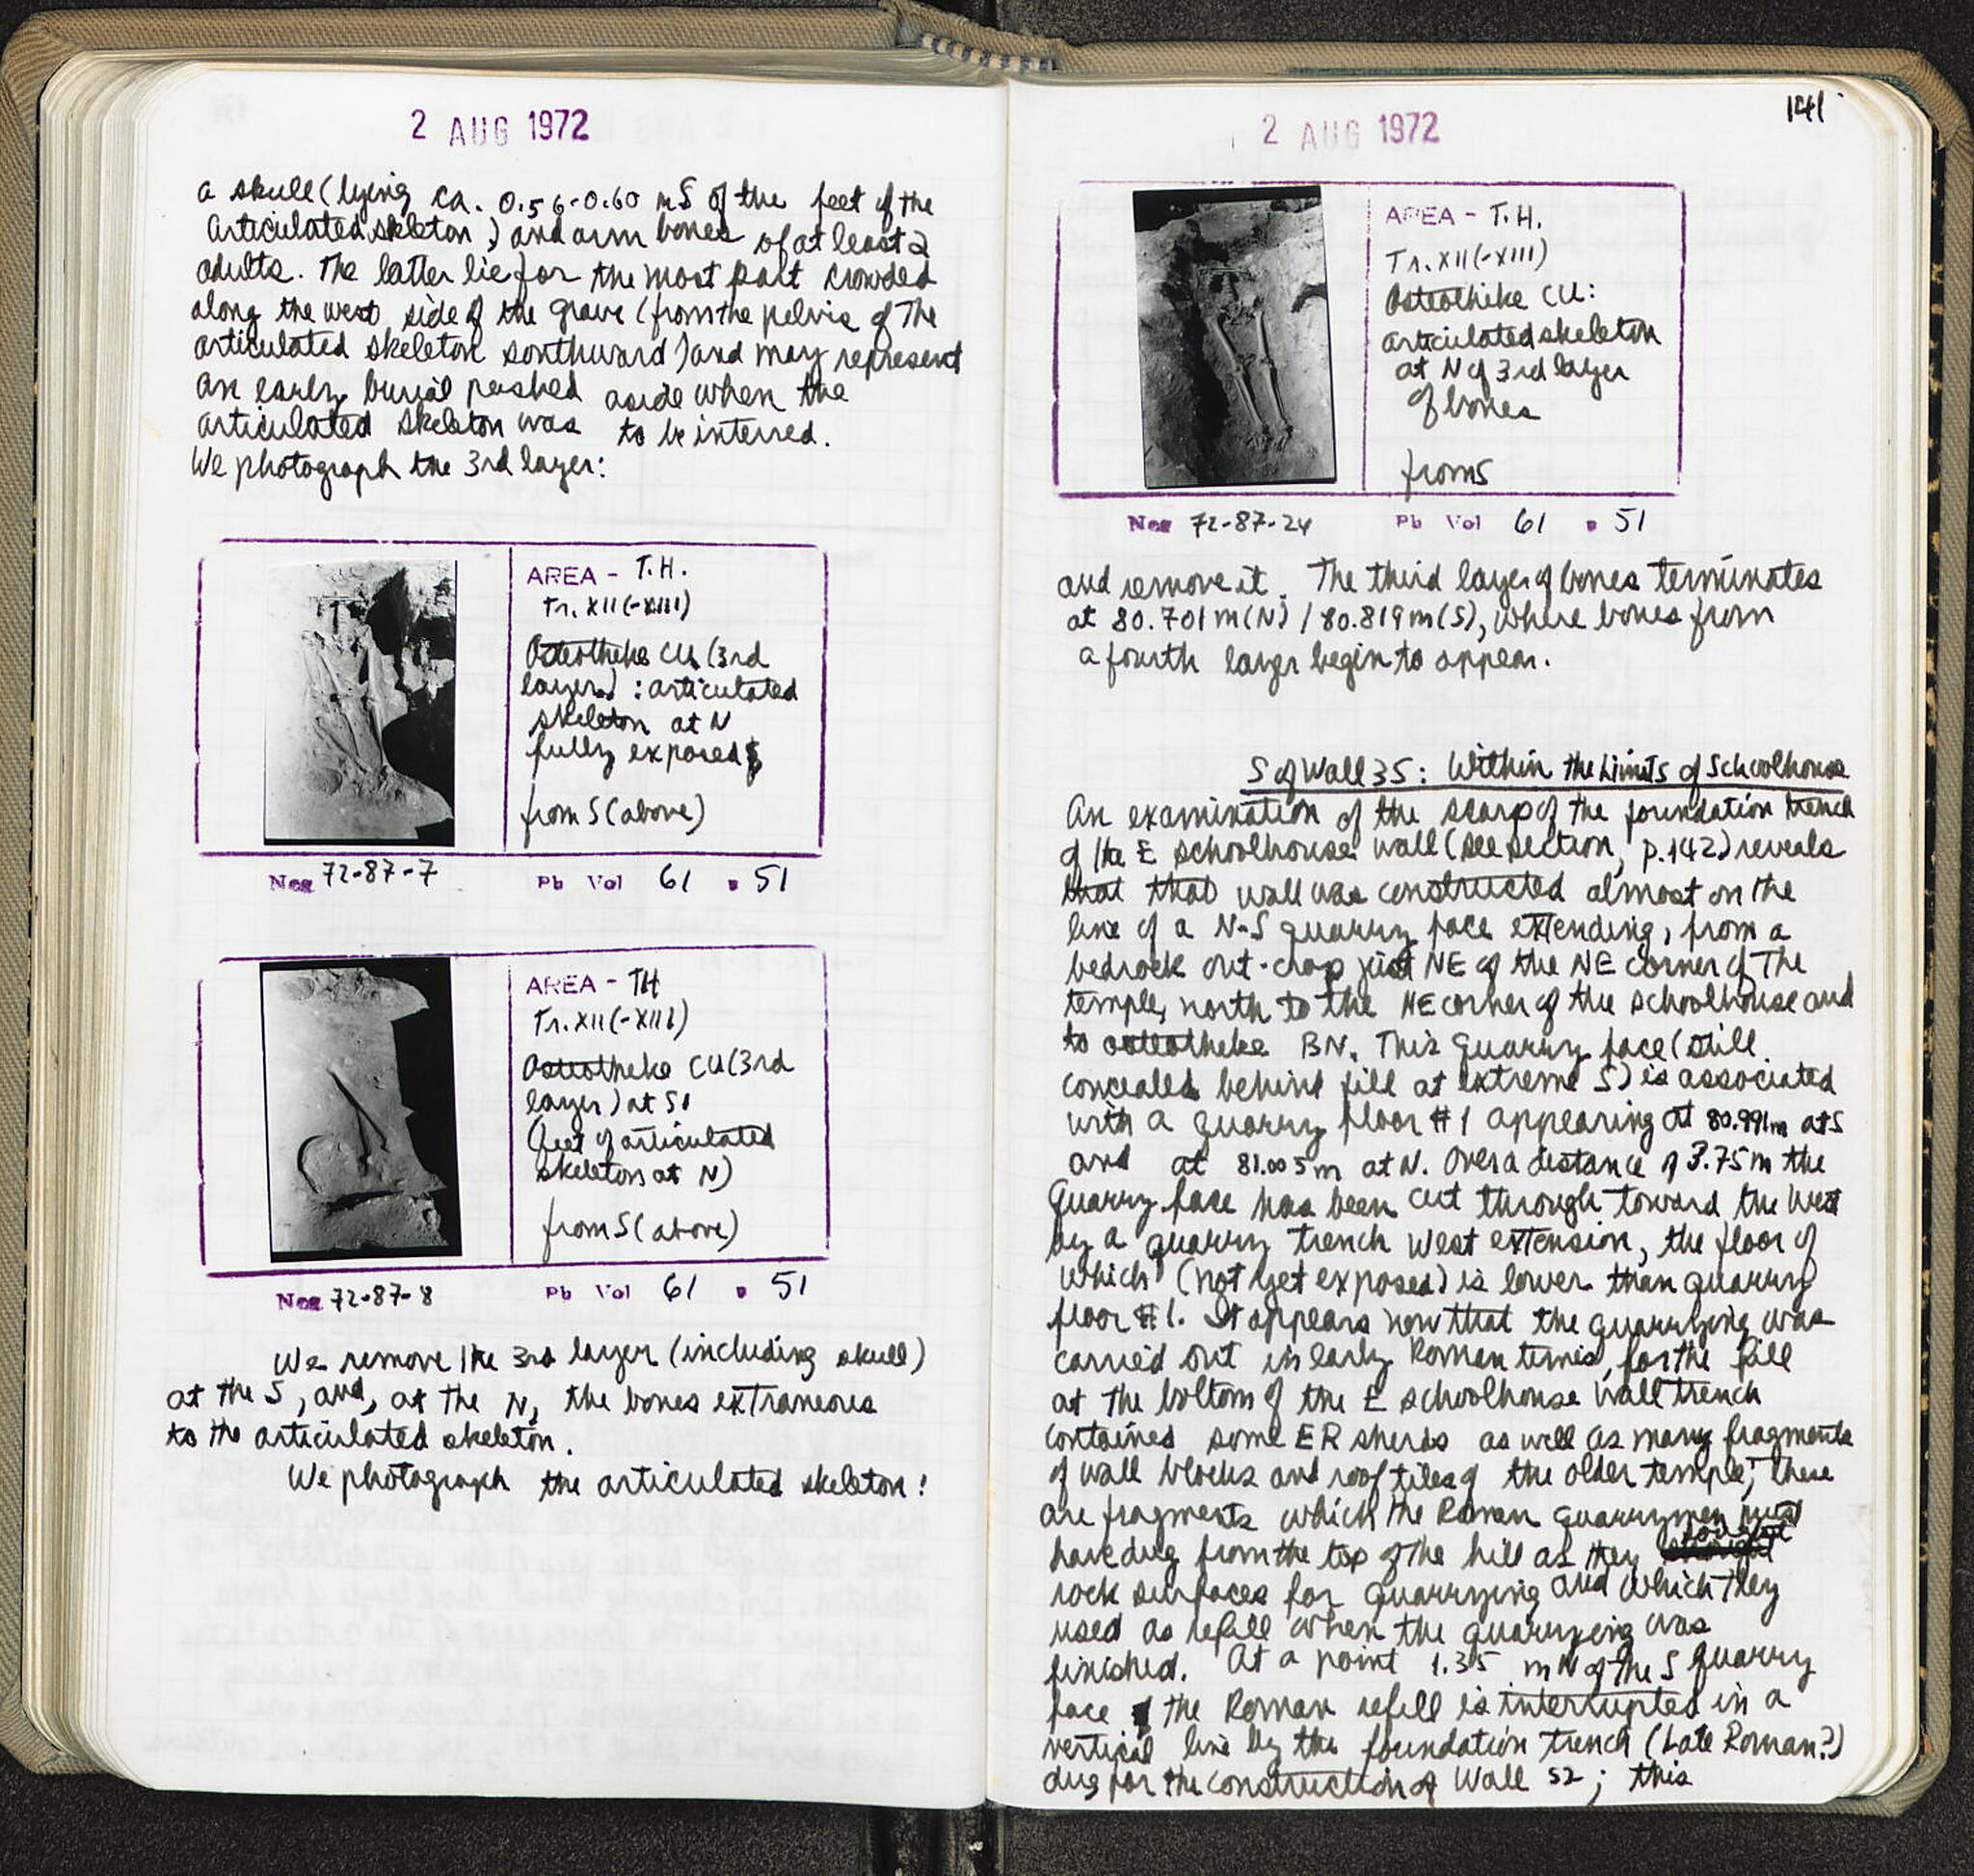 2 AUG 1972
a skull (lying ca. 0.56-0.60 m S of the feet of the
articulated skeleton) and arm bones of at least 2
adults. The latter lie for the most part crowded
along the west side of the grave (from the pelvis of the
articulated skeleton southward) and may represent
an early burial pushed aside when the
articulated skeleton was to be interred.
We photograph the 3rd layer:
AREA - T.H.
Tr. XII (-XIII)
Osteotheke CU (3rd
layer) : articulated
skeleton at N
fully exposed
from S (above)
Neg 72-87-7 Pb Vol 61 p 51
AREA - TH
Tr. XII (-XIII)
Osteotheke CU (3rd
layer) at S
(feet of articulated
skeleton at N)
from S (above)
Neg 72-87-8 Pb Vol 61 p 51
We remove the 3rd layer (including skull)
at the S, and, at the N, the bones extraneous
to the articulated skeleton.
We photograph the articulated skeleton:
141
2 AUG 1972
AREA - T.H.
Tr. XII (-XIII)
Osteotheke CU:
articulated skeleton
at N of 3rd layer
of bones
from S
Neg 72-87-24 Pb Vol 61 p 51
and remove it. The third layer of bones terminates
at 80.701 m (N) / 80.819 m (S), where bones from
a fourth layer begin to appear.
S of Wall 35: Within the Limits of Schoolhouse
An examination of the scarp of the foundation trench
of the E schoolhouse wall (see section, p. 142) reveals
that that wall was constructed almost on the
line of a N-S quarry face extending, from a
bedrock out-crop just NE of the NE corner of the
temple, north to the NE corner of the schoolhouse and
to osteotheke BN. This quarry face (still
concealed behind fill at extreme S) is associated
with a quarry floor #1 appearing at 80.991m at S
and at 81.005m at N. Over a distance of 3.75m the
quarry face has been cut through toward the west
by a quarry trench west extension, the floor of
which (not yet exposed) is lower than quarry
floor #1. It appears now that the quarrying was
carried out in early Roman times, for the fill
at the bottom of the E schoolhouse wall trench
contained some ER sherds as well as many fragments
of wall blocks and roof tiles of the older temple; these
are fragments which the Roman quarrymen must
have dug from the top of the hill as they sought
rock surfaces for quarrying and which they
used as refill when the quarrying was
finished. At a point 1.35 m N of the S quarry
face the Roman refill is interrupted in a
vertical line by the foundation trench (Late Roman?)
dug for the construction of Wall 52; this